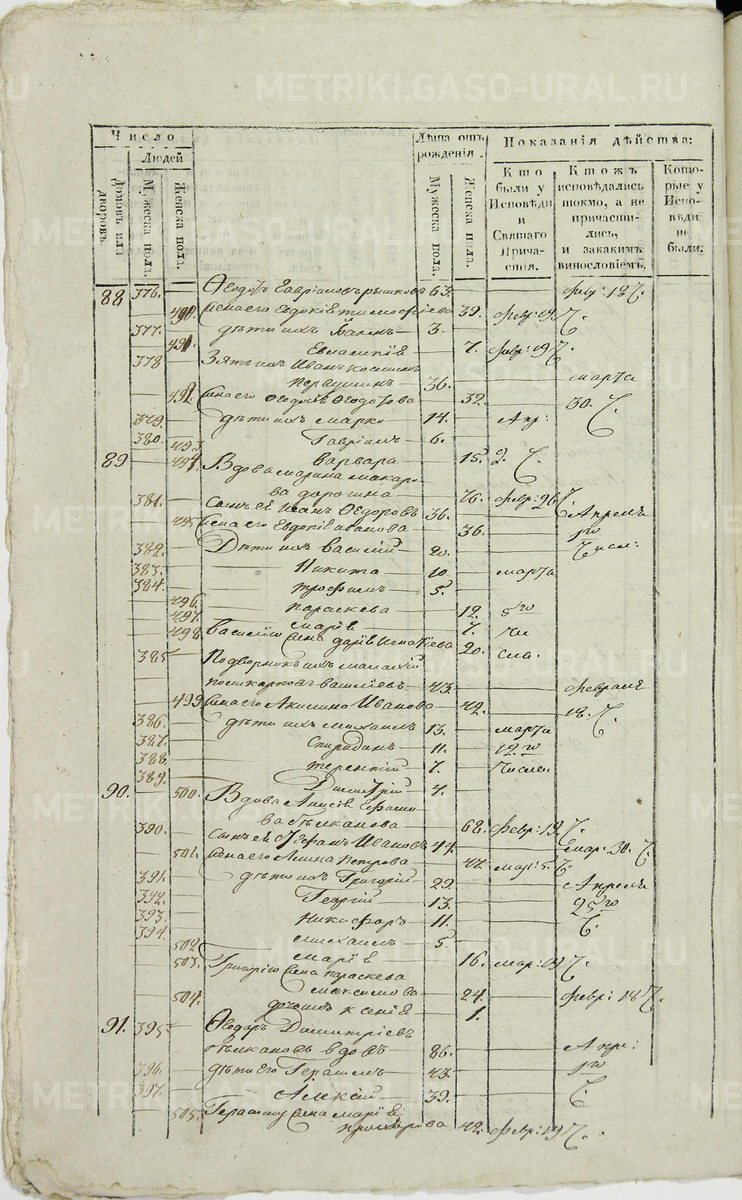 Число
Людей
Домовъ или дворовъ.
Мужеска пола.
Женска пола.
Лѣта отъ рожденія.
Мужеска пола.
Женска пола.
Показанія дѣйства:
Кто были у Исповѣди и Святаго Причастія.
Ктожъ исповѣдались токмо, а не причастились, и закакимъ винословіемъ.
Которые у Исповѣди не были.
88 376. Ѳеодотъ Гавріловъ рышковъ 63. февр: 18 Ч.
490. Жена его Евдокія тимоѳѣева 39. февр: 19 Ч.
377. дѣти ихъ 3.
491. Евлампія 7. февр: 19 Ч.
378 Зять ихъ Иванъ косминъ
первушинъ 36. марта
492. Жена его Ѳеодосія Ѳеодотова 32. 30. Ч.
379. дѣти ихъ марко 14. Апр:
380. Гавріилъ 6.
493. варвара 15. 2. Ч.
89 494. Вдова марина макаро
ва 76. февр: 26 Ч.
381. Сынъ ея Иванъ Ѳедоровъ 36. Апреля
495. Жена его Евдокія иванова 36. 1го
382. Дѣти ихъ василій 20. Числ:
383. Никита 10. марта
384. трофимъ 5.
496. параскева 12. 5го
497. марія 7. Чи
498. василію жена дарія 20. сла.
385 Подворникъ ихъ
васильевъ 43. февраля
499 Жена его Акилина Иванова 42. 18. Ч.
386. дѣти ихъ михаилъ 13. марта
387. Спиридонъ 11. 12го
388. терентій 7. Числа
389. Димитрій 4.
90. 500. Вдова Анисія
ва Пѣлканова 68. февр: 19 Ч.
390. Сынъ ея Стефанъ Ивановъ 44. мар: 30. Ч.
501. Жена его Анна петрова 42. мар: 5. Ч.
391. дѣти ихъ Григорій 22. Апреля
392. Георгій 13. 25го
393. никифоръ 11. Ч.
394. михаилъ 5.
502. марія 16. мар: 19 Ч.
503. Григорію жена параскева
максимова 24. февр: 18 Ч.
504. дочь ихъ ксенія 1.
91. 395 Ѳеодоръ Димитріевъ
пѣлкановъ вдовъ 86. Апре:
396. дѣти его Герасимъ 43. 1го
397. Алексій 39. Ч.
505. Герасиму жена марія
прохорова 42. февр: 19 Ч.
METRIKI.GASO-URAL.RU